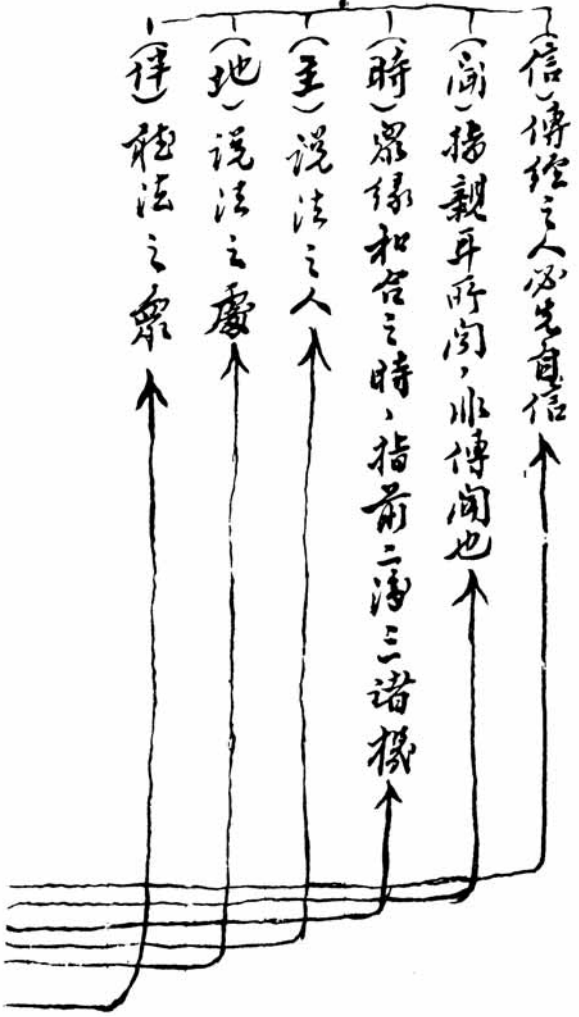 (信)傳經之人必先自信
(聞)指親耳所聞,非傳聞也
(時)眾緣和合之時、指前二済三諸機
(主)說法之人
(地)說法之處
(伴)聽法之眾